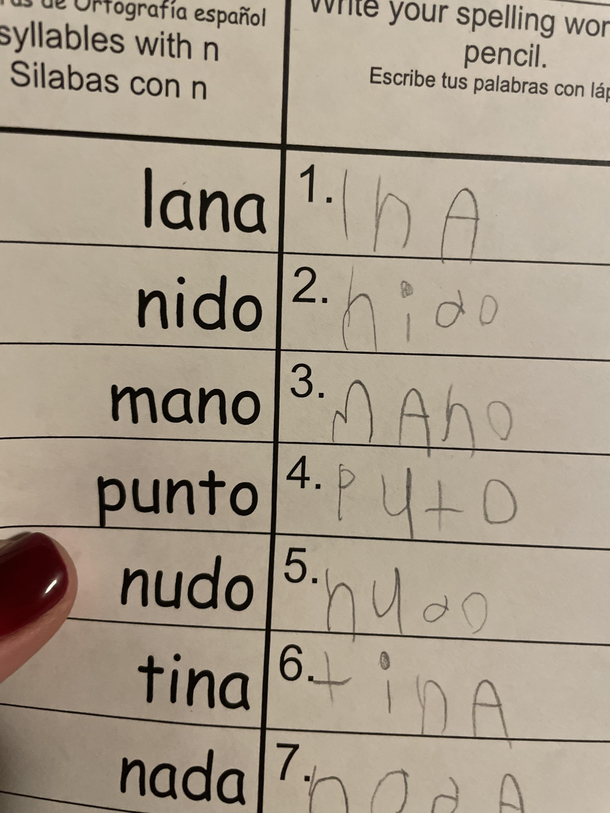 de Ortografía español
syllables with n
Silabas con n
Write your spelling wor
pencil.
Escribe tus palabras con láp
lana 1. lnA
nido 2. nido
mano 3. mAno
punto 4. puto
nudo 5. nudo
tina 6. tinA
nada 7.